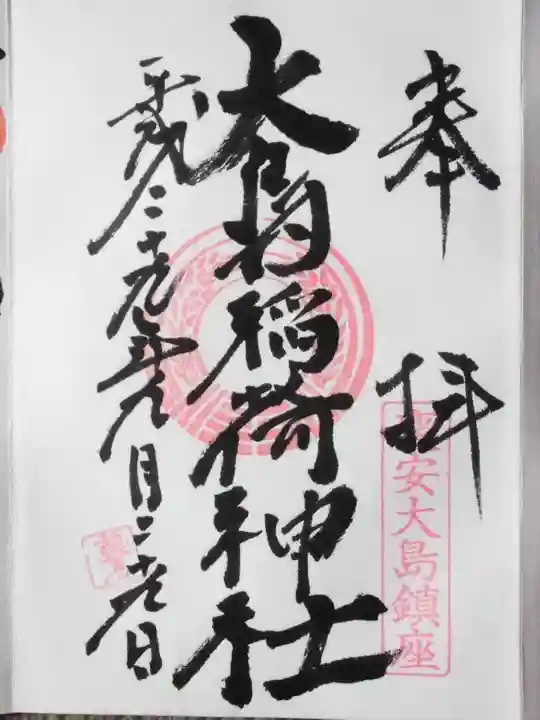 奉拝
慶安大島鎮座
大島稲荷神社
平成二十九年 月二十 日